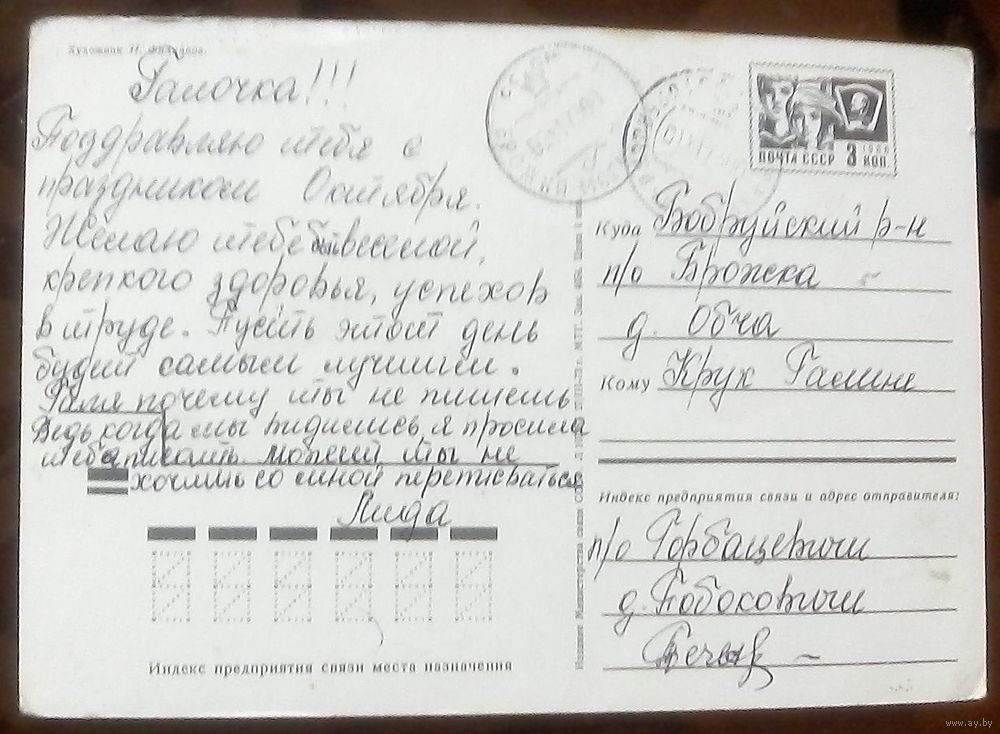 Художник
Галочка!!!
Поздравляю тебя с
праздником Октября.
Желаю тебе веселой,
крепкого здоровья, успехов
в труде. Пусть этот день
будет самым лучшим.
Галя почему ты не пишешь
Ведь когда мы видились, я просила
тебя писать. может ты не
хочишь со мной переписываться
Лида
Индекс предприятия связи места назначения
Издание Министерства связи
ПОЧТА СССР 3 КОП. 1966
Куда Бобруйский р-н
п/о Брожска
д. Обча
Кому Крук Галине
Индекс предприятия связи и адрес отправителя:
п/о Горбацевичи
д. Бобоковичи
www.ay.by